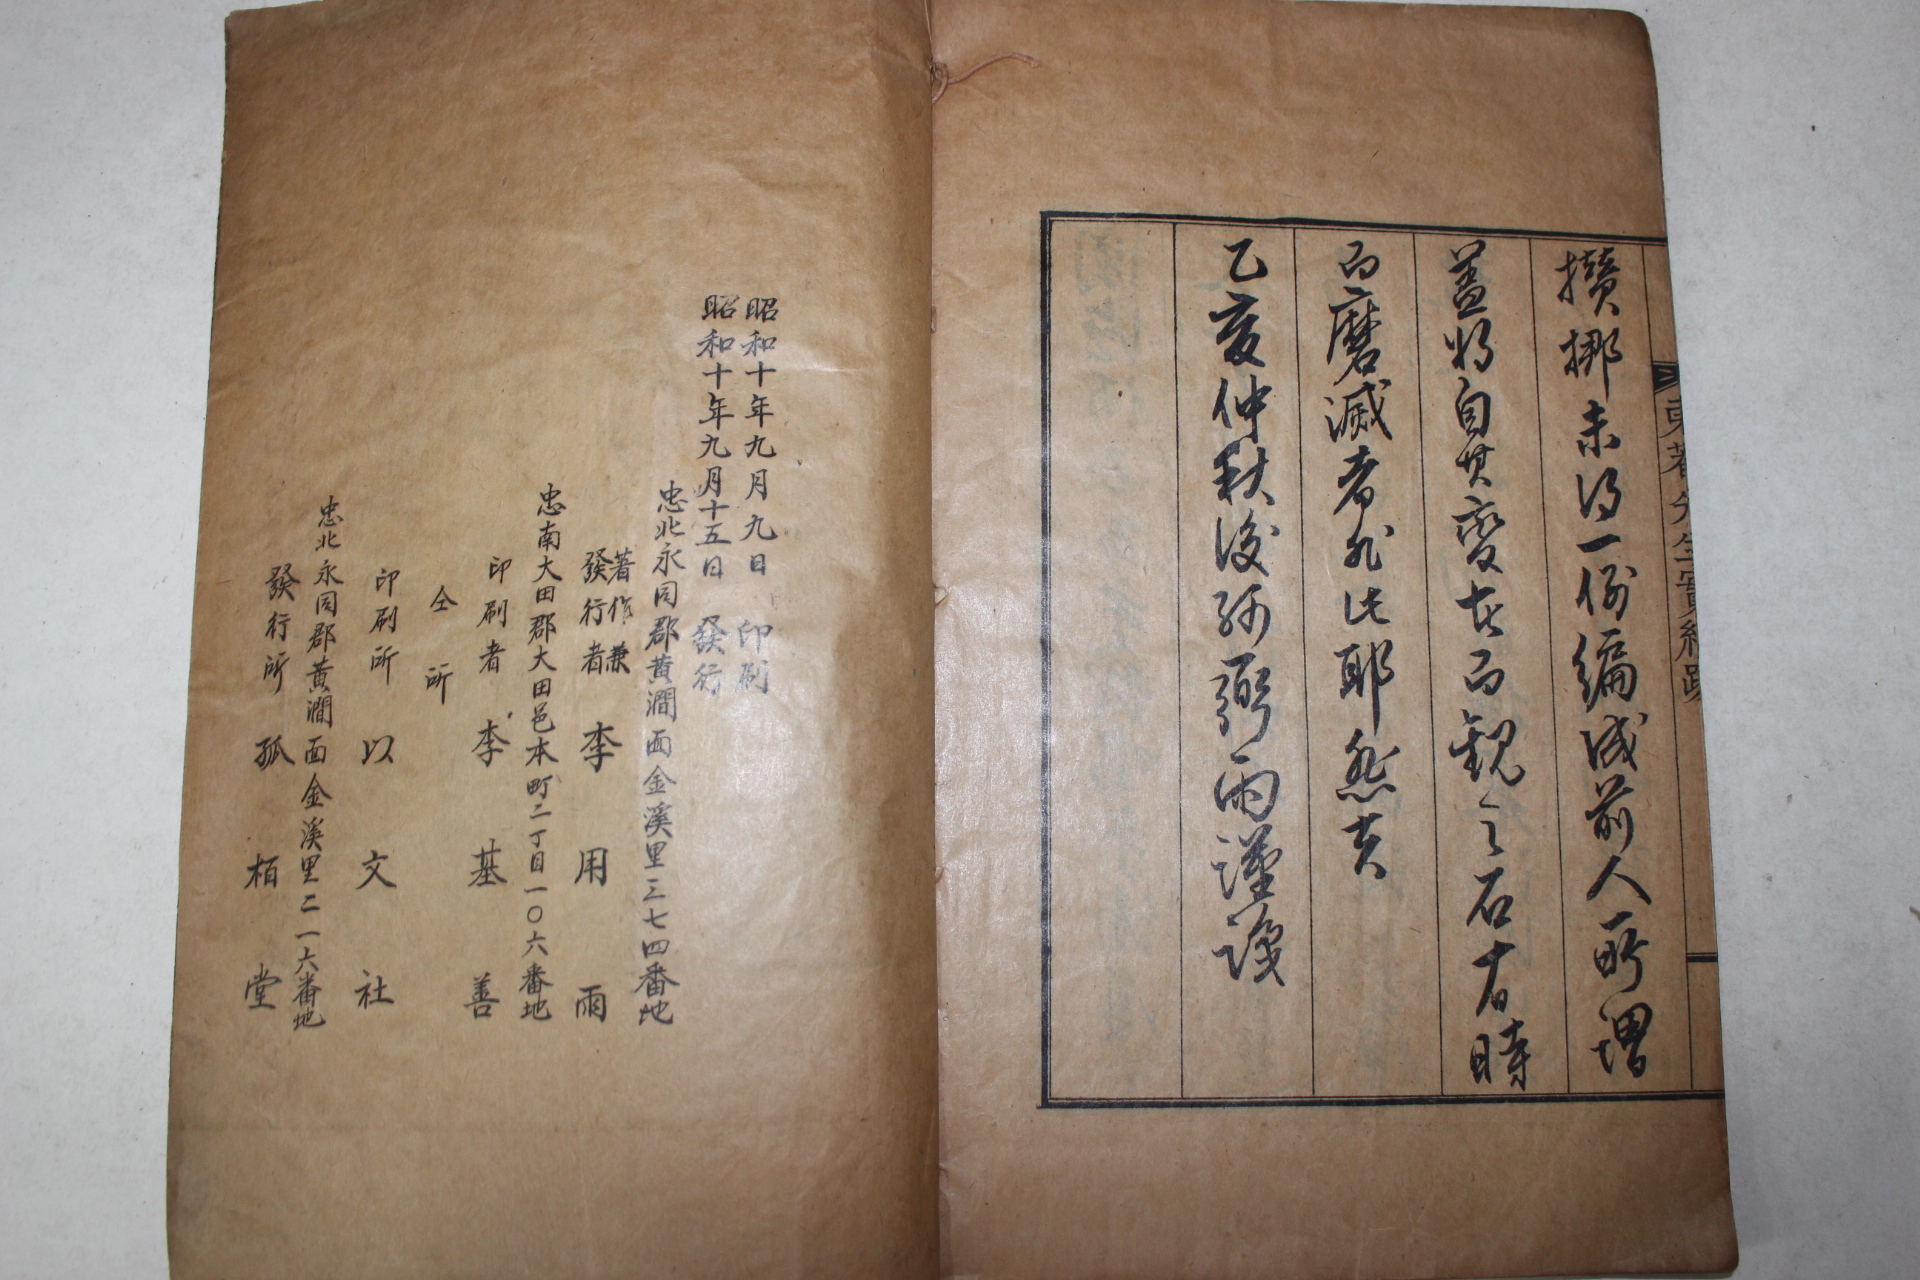 攢挪未得一例編成前人所增
蓋將自其變者而觀之石有時
而磨滅者非比耶然矣
乙亥仲秋後孫用雨謹識
先生實紀跋
昭和十年九月九日 印刷
昭和十年九月十五日 發行
忠北永同郡黃澗面金溪里三七四番地
著作兼
發行者 李用雨
忠南大田郡大田邑本町二丁目一〇六番地
印刷者 李基善
仝所
印刷所 以文社
忠北永同郡黃澗面金溪里二一六番地
發行所 孤栢堂